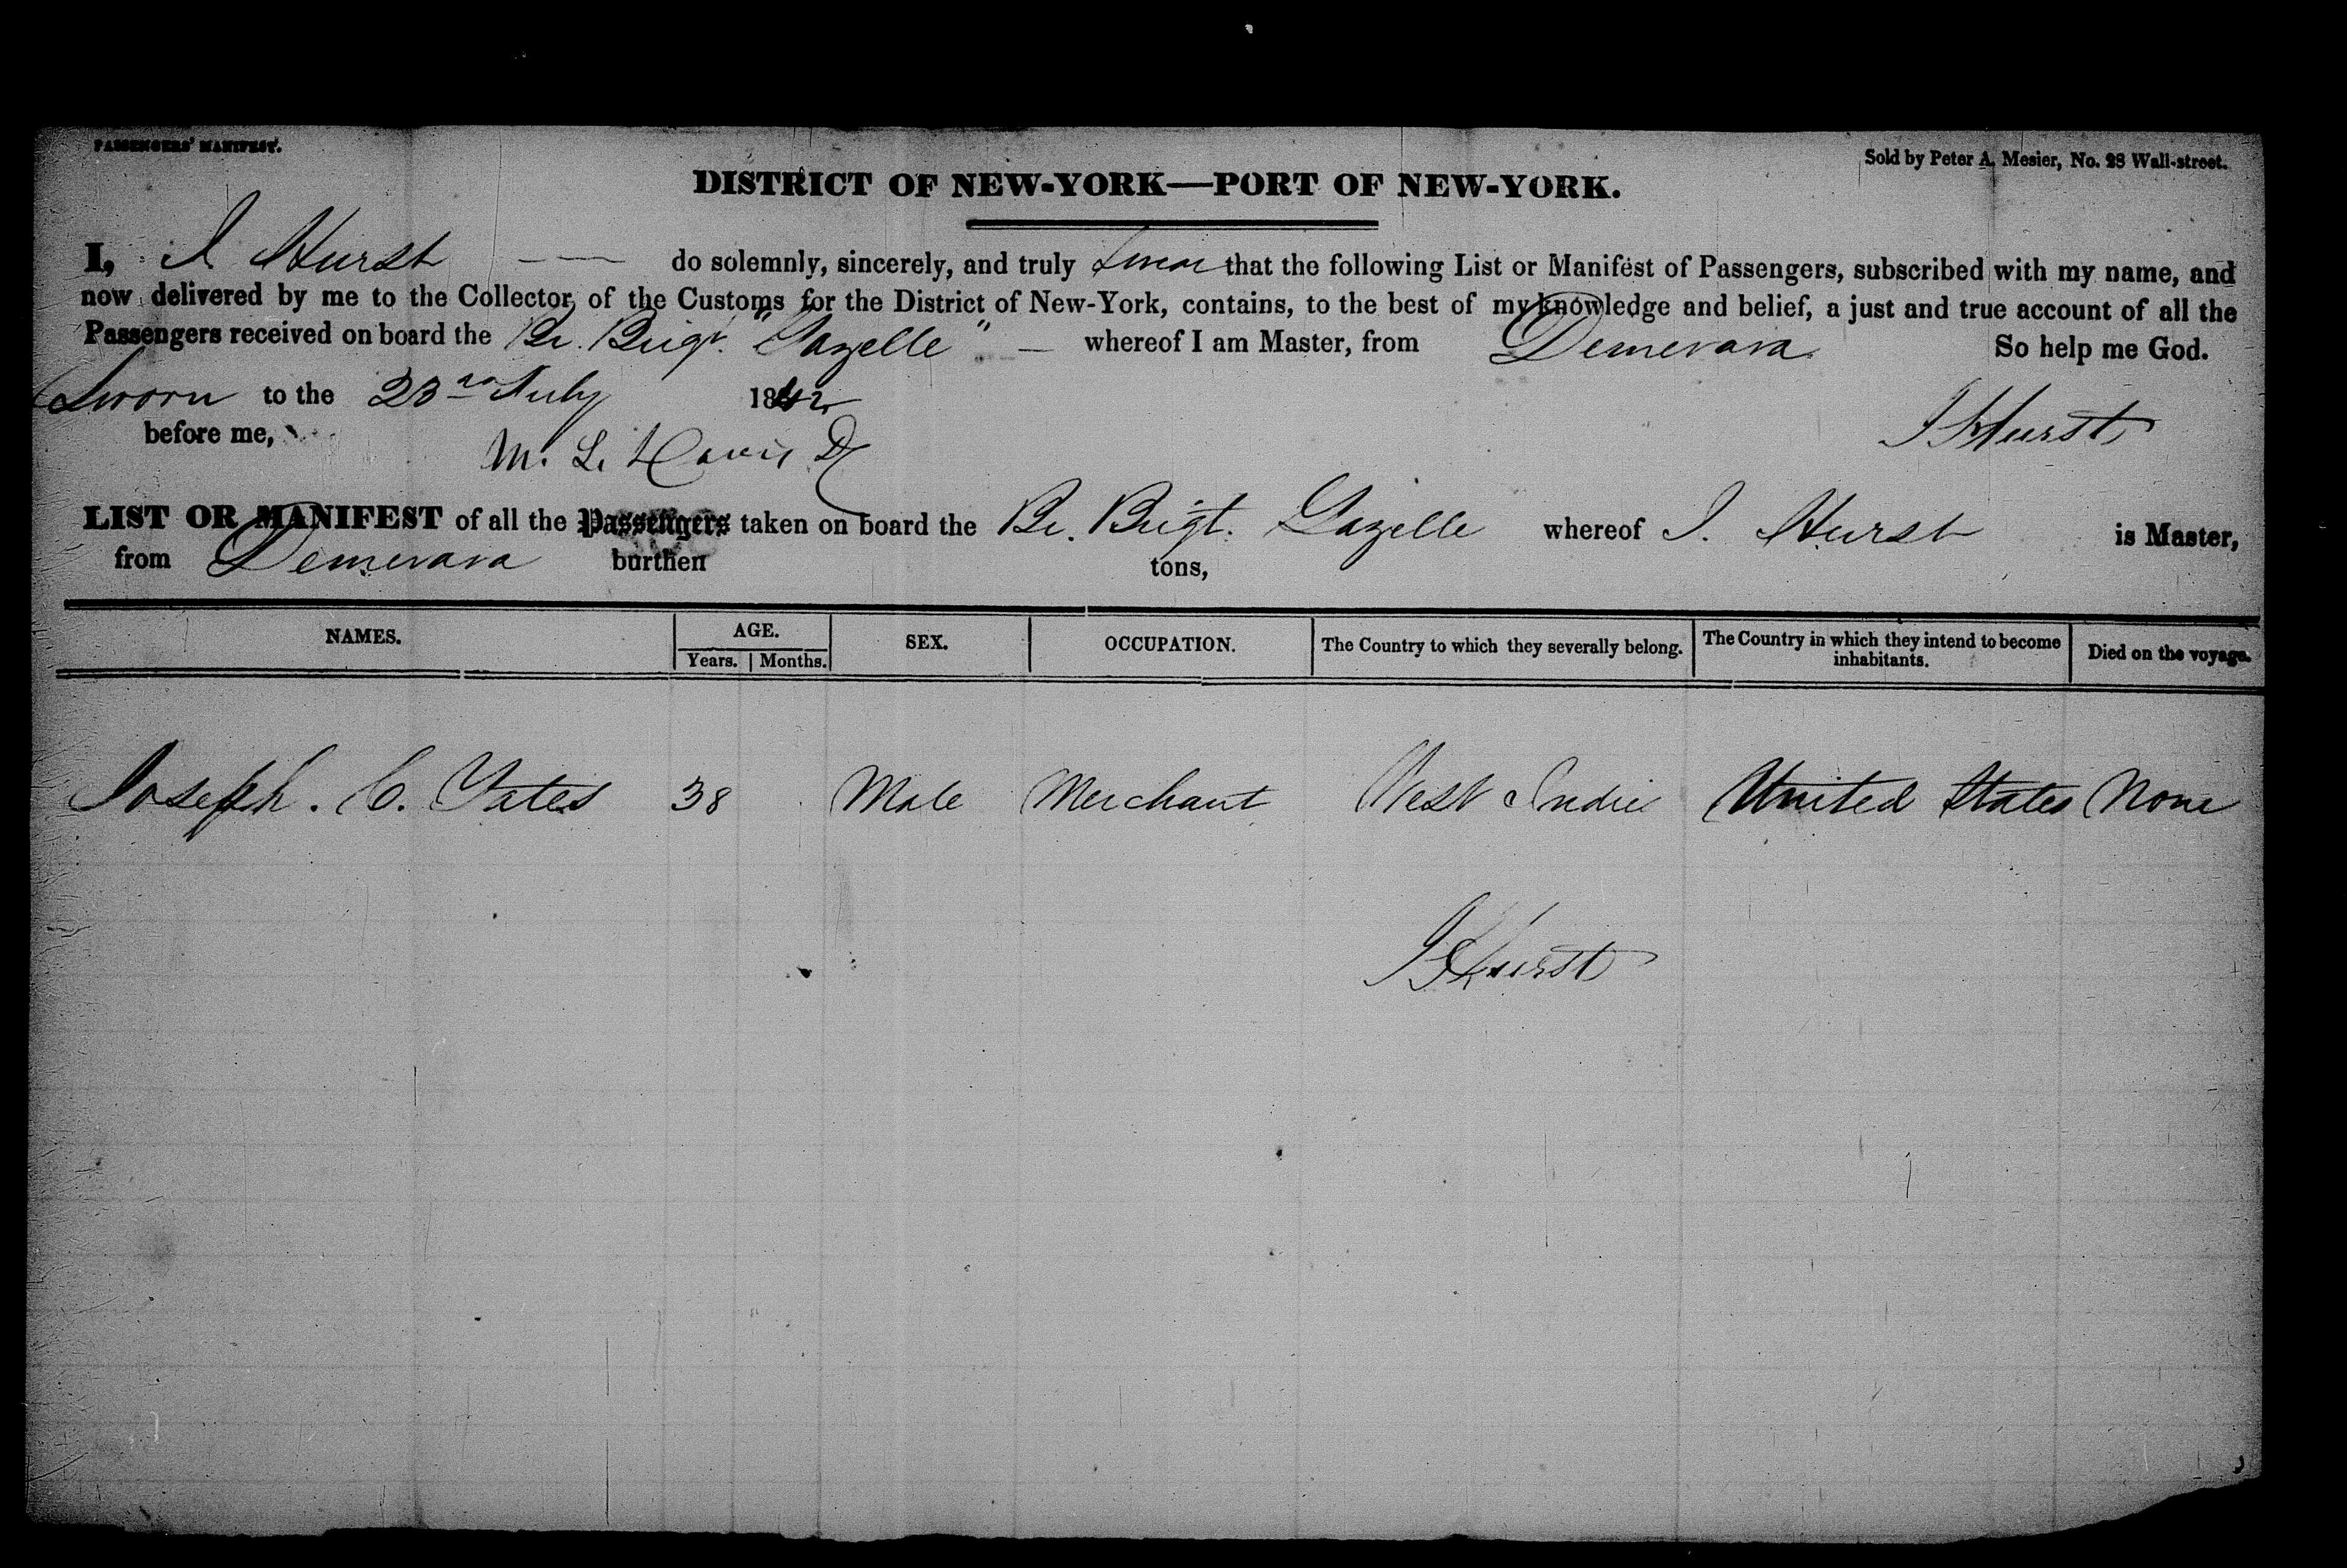 PASSENGERS' MANIFEST.
Sold by Peter A. Mesier, No. 28 Wall-street.
DISTRICT OF NEW-YORK—PORT OF NEW-YORK.
I, I Hurst do solemnly, sincerely, and truly swear that the following List or Manifest of Passengers, subscribed with my name, and
now delivered by me to the Collector of the Customs for the District of New-York, contains, to the best of my knowledge and belief, a just and true account of all the
Passengers received on board the Br. Brigt. "Gazelle" — whereof I am Master, from Demerara So help me God.
Sworn to the 23rd July 1842
before me,
I Hurst
M. L. Davis
LIST OR MANIFEST of all the Passengers taken on board the Br. Brigt. Gazelle whereof I. Hurst is Master,
from Demerara burthen tons,
NAMES. AGE. SEX. OCCUPATION. The Country to which they severally belong. The Country in which they intend to become inhabitants. Died on the voyage.
Years. Months.
Joseph. C. Yates 38 Male Merchant West Indies United States None
I Hurst